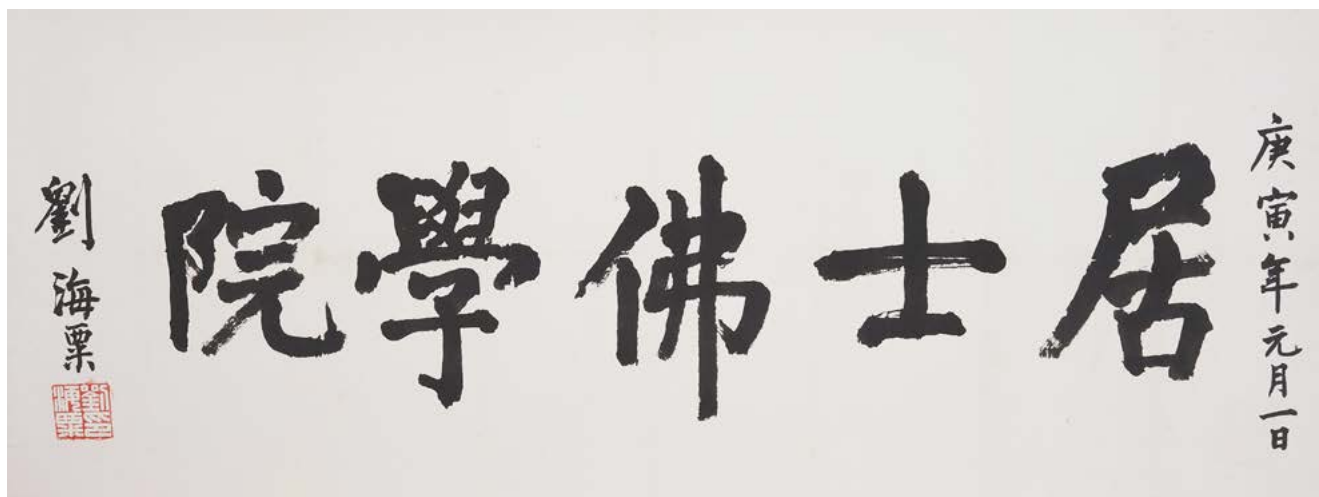 庚寅年元月一日
居士佛學院
劉海粟
劉海粟印